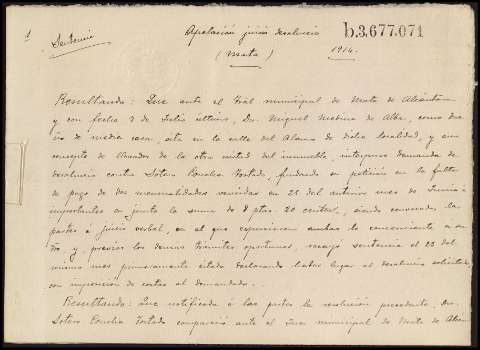 Apelación juicio desahucio
b.3.677.071
Sentencia
(Mata)
1914.
Resultando: Que ante el Tral municipal de Mata de Alcántara
y con fecha 8 de Julio último, Dn. Miguel Medina de Alba, como due
ño de media casa, sita en la calle del Alamo de dicha localidad, y con
concepto de del la otra mitad del inmueble, interpuso demanda de
desahucio contra Sotero Tostado, fundando su petición en la falta
de pago de dos mensualidades vencidas en 25 del anterior mes de Junio é
importantes en junto la suma de 8 ptas. 20 cénts., siendo convocadas las
partes á juicio verbal, en el que expusieron ambas lo concerniente a su
dro y previos los demas trámites oportunos, recayó sentencia el 23 del
mismo mes primeramente citado declarando haber lugar al desahucio solicitado
con imposición de costas al demandado.
Resultando: Que notificada á las partes la resolución precedente, Dn.
Sotero Tostado compareció ante el Juez municipal de Mata de Alcán